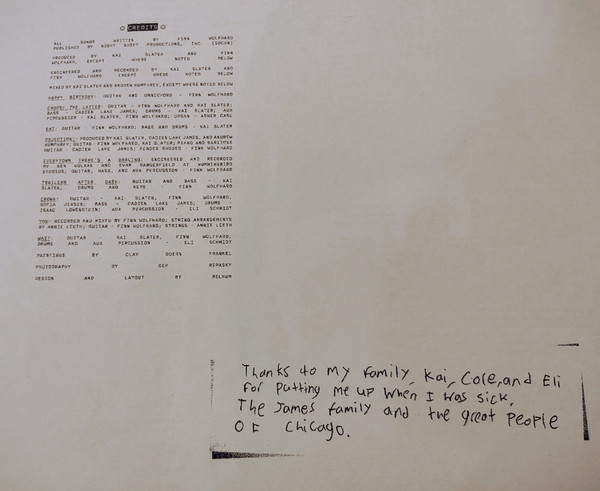 CREDITS
ALL SONGS WRITTEN BY FINN WOLFHARD
PUBLISHED BY NIGHT SHIFT PRODUCTIONS, INC. (SOCAN)
PRODUCED BY KAI SLATER AND FINN
WOLFHARD, EXCEPT WHERE NOTED BELOW
ENGINEERED AND RECORDED BY KAI SLATER AND
FINN WOLFHARD EXCEPT WHERE NOTED BELOW
MIXED BY KAI SLATER AND HAYDEN HUMPHREY, EXCEPT WHERE NOTED BELOW
HAPPY BIRTHDAY: GUITAR AND OMNICHORD - FINN WOLFHARD
CHOOSE THE LATTER: GUITAR - FINN WOLFHARD AND KAI SLATER;
BASS - CADIEN LAKE JAMES; DRUMS - KAI SLATER; AUX
PERCUSSION - KAI SLATER, FINN WOLFHARD; ORGAN - ASHER CASE
EAT: GUITAR - FINN WOLFHARD; BASS AND DRUMS - KAI SLATER
OBJECTION: PRODUCED BY KAI SLATER, CADIEN LAKE JAMES, AND ANDREW
HUMPHREY; GUITAR - FINN WOLFHARD, KAI SLATER; PIANO AND BARITONE
GUITAR - CADIEN LAKE JAMES; FENDER RHODES - FINN WOLFHARD
EVERYTOWN THERE'S A DARLING: ENGINEERED AND RECORDED
BY BEN HOLKAS AND EVAN DANGERFIELD AT HUMMINGBIRD
STUDIOS; GUITAR, BASS, AND AUX PERCUSSION - FINN WOLFHARD
TRAILERS AFTER DARK: GUITAR AND BASS - KAI
SLATER; DRUMS AND KEYS - FINN WOLFHARD
CROWN: GUITAR - KAI SLATER, FINN WOLFHARD,
SOFIA JENSEN; BASS - CADIEN LAKE JAMES; DRUMS -
ISAAC LOWENSTEIN; AUX PERCUSSION - ELI SCHMIDT
YOU: RECORDED AND MIXED BY FINN WOLFHARD; STRING ARRANGEMENTS
BY ANNIE LIETH; GUITAR - FINN WOLFHARD; STRINGS - ANNIE LIETH
WAIT: GUITAR - KAI SLATER, FINN WOLFHARD;
DRUMS AND AUX PERCUSSION - ELI SCHMIDT
PAINTINGS BY CLAY DOERN FRANKEL
PHOTOGRAPHY BY SEP REPASKY
DESIGN AND LAYOUT BY
Thanks to my family, Kai, Cole, and Eli
for putting me up when I was sick.
The James family and the great people
of Chicago.